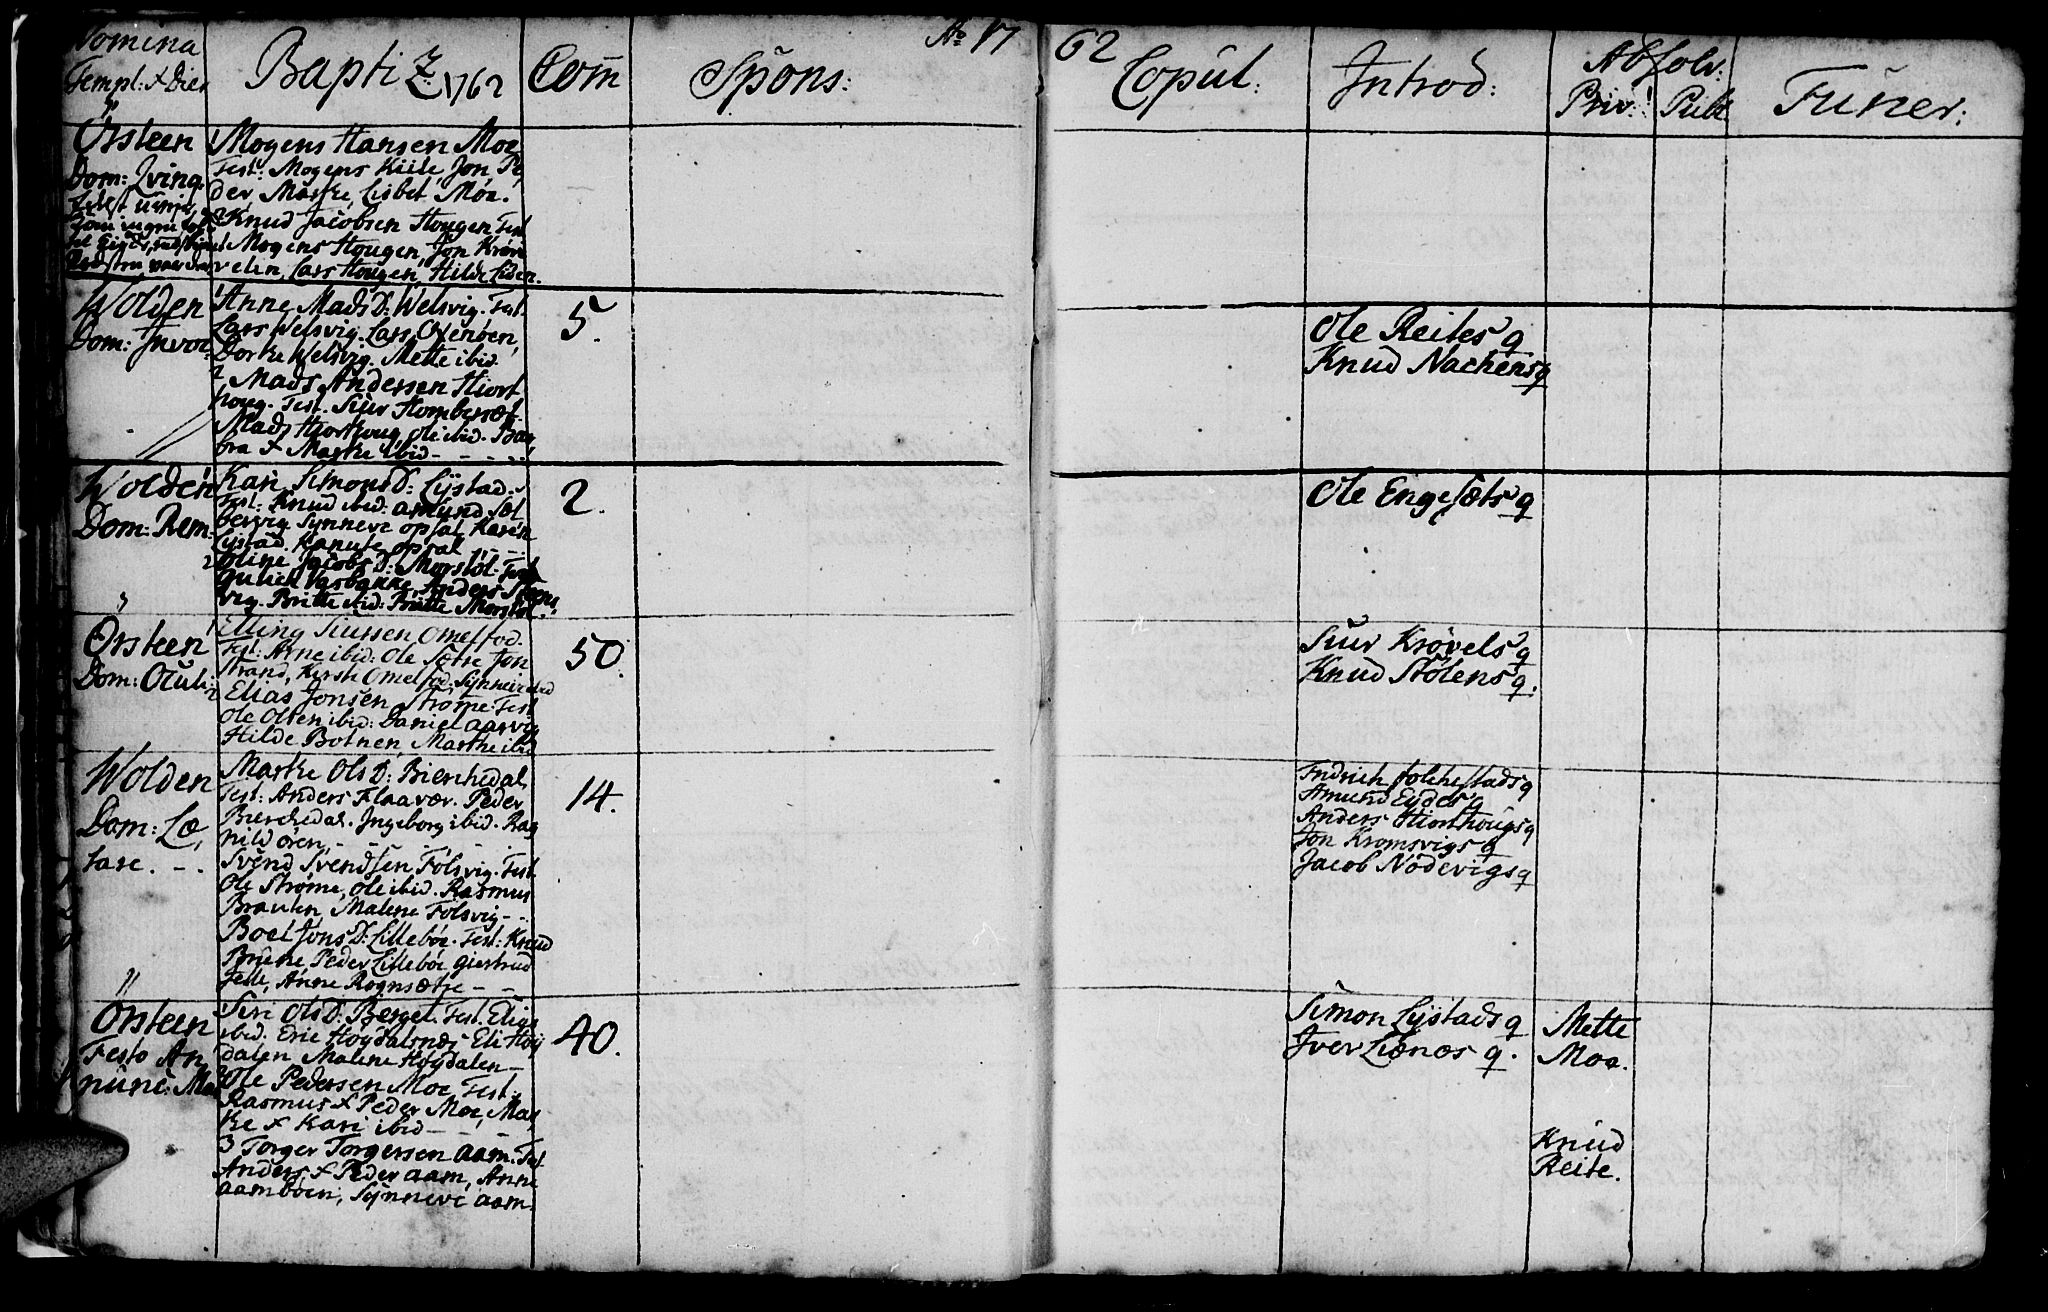 Nomina
Templ: & Dier
Baptiz 1762
Com
Spons:
Ao 17
62
Copul:
Introd:
Absolv:
Priv:
Publ
Funer:
Ørsteen
Dom: Qvinq.
Mogens Hansen Moe
Test: Mogens Kiile, Jon Pe
der, Marke, Lisbet Moe.
2 Knud Jacobsen Hougen Test
Mogens Hougen, Jon Krøv
velin, Lars Hougen, Hilde Liden.
Wolden
Dom: Invoc:
Anne Mads D: Welsvig. Test.
Lars Welsvig. Lars Ofenøen,
Dorke Welsvig. Mette ibid.
2 Mads Andersen Hiort
houg. Test. Siur Hombersæt.
Mads Hiorthoug, ole ibid. Bar
bra & Marke ibid - - - -
5.
Ole Reites q
Knud Nachens q
Wolden
Dom: Rem.
Kari Simons D: Lystad.
Test: Knud ibid: amund Sæt
bervig. Synneve opsal Karen
Lystad. Kanute opsal
2 Oline Jacobs D: Morstøl. Test
Gulick Vasbakke, Anders
vig. Britte ibid: Britte Morstøl.
2.
Ole Engesæts q
Ørsteen
Dom: Oculi:
1 Elling Siursen Omelfod.
Test: Arne ibid: Ole Sætre Jon
Strand, Kirsti Omelfod: Synneve ibid
2 Elias Jonsen Strøme. Test
Ole Olsen ibid: Daniel aarvig
Hilde Botnen, Marthe ibid
50.
Siur Krøvels q
Knud Stølens q.
Wolden
Dom: Læ,
tare. - -
Marke Ols D: Bierchedal
Test: Anders Klaavær. Peder
Bierchedal. Ingeborg ibid. Rag
nild ören, - - - -
Svend Svendsen Følsvig. Test
Ole Strøme, ole ibid. Rasmus
Brauten, Malene Følsvig - -
Boel Jons D: Lillebøe. Test: Knud
Brune Peder Lillebøe Giertrud
Felle, Anne Rognsætre - -
14.
Endrich folchestads q
Amund Eydes q
Anders Hiorthougs q
Jon Kromsvigs q
Jacob Nødevigs q
Örsteen
Festo An,
nunc: Ma
Siri Ols D: Berget. Test. Elias
ibid. Eric Høydalsnæs Eli Høy
dalen Malene Høydalen -
2 Ole Pedersen Moe Test.
Rasmus & Peder Moe, Mar,
ke & Kari ibid - - -
3 Torger Torgersen aam. Test
Anders & Peder aam, Anne
aambøen, Synneve aam
40.
Simon Lystads q
Iver Liænæs q.
Mette
Moe.
Knud
Reite.